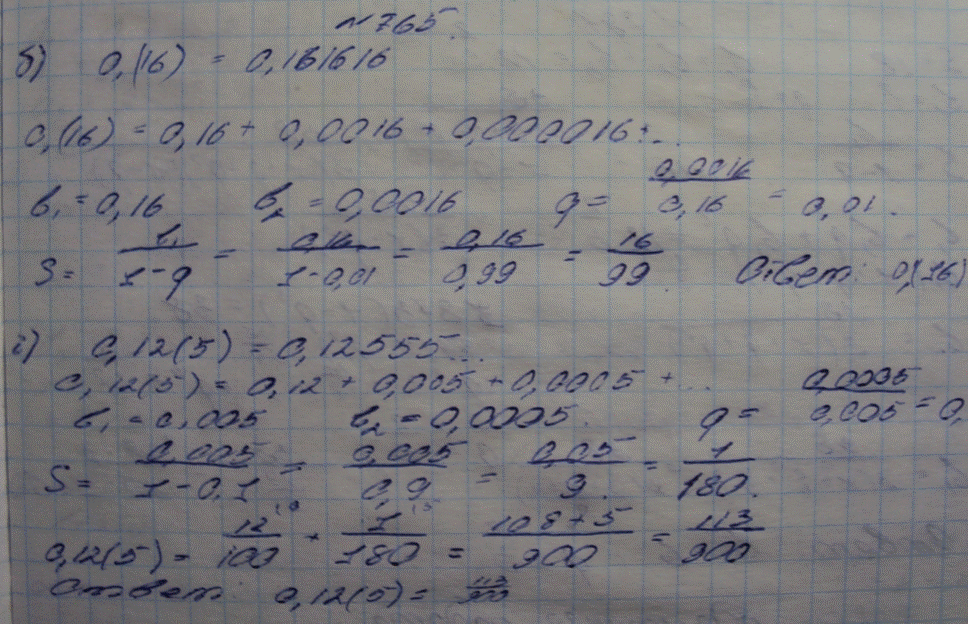 №765.
б) 0,(16) = 0,161616
0,(16) = 0,16 + 0,0016 + 0,000016 + ...
b₁ = 0,16 b₂ = 0,0016 q = 0,0016/0,16 = 0,01.
S = b₁/1-q = 0,16/1-0,01 = 0,16/0,99 = 16/99. Ответ: 0,(16)
г) 0,12(5) = 0,12555...
0,12(5) = 0,12 + 0,005 + 0,0005 + ...
b₁ = 0,005 b₂ = 0,0005. q = 0,0005/0,005 = 0,
S = 0,005/1-0,1 = 0,005/0,9 = 0,05/9. = 1/180.
0,12(5) = 12/100 + 1/180 = 108+5/900 = 113/900
Ответ: 0,12(5) = 113/900